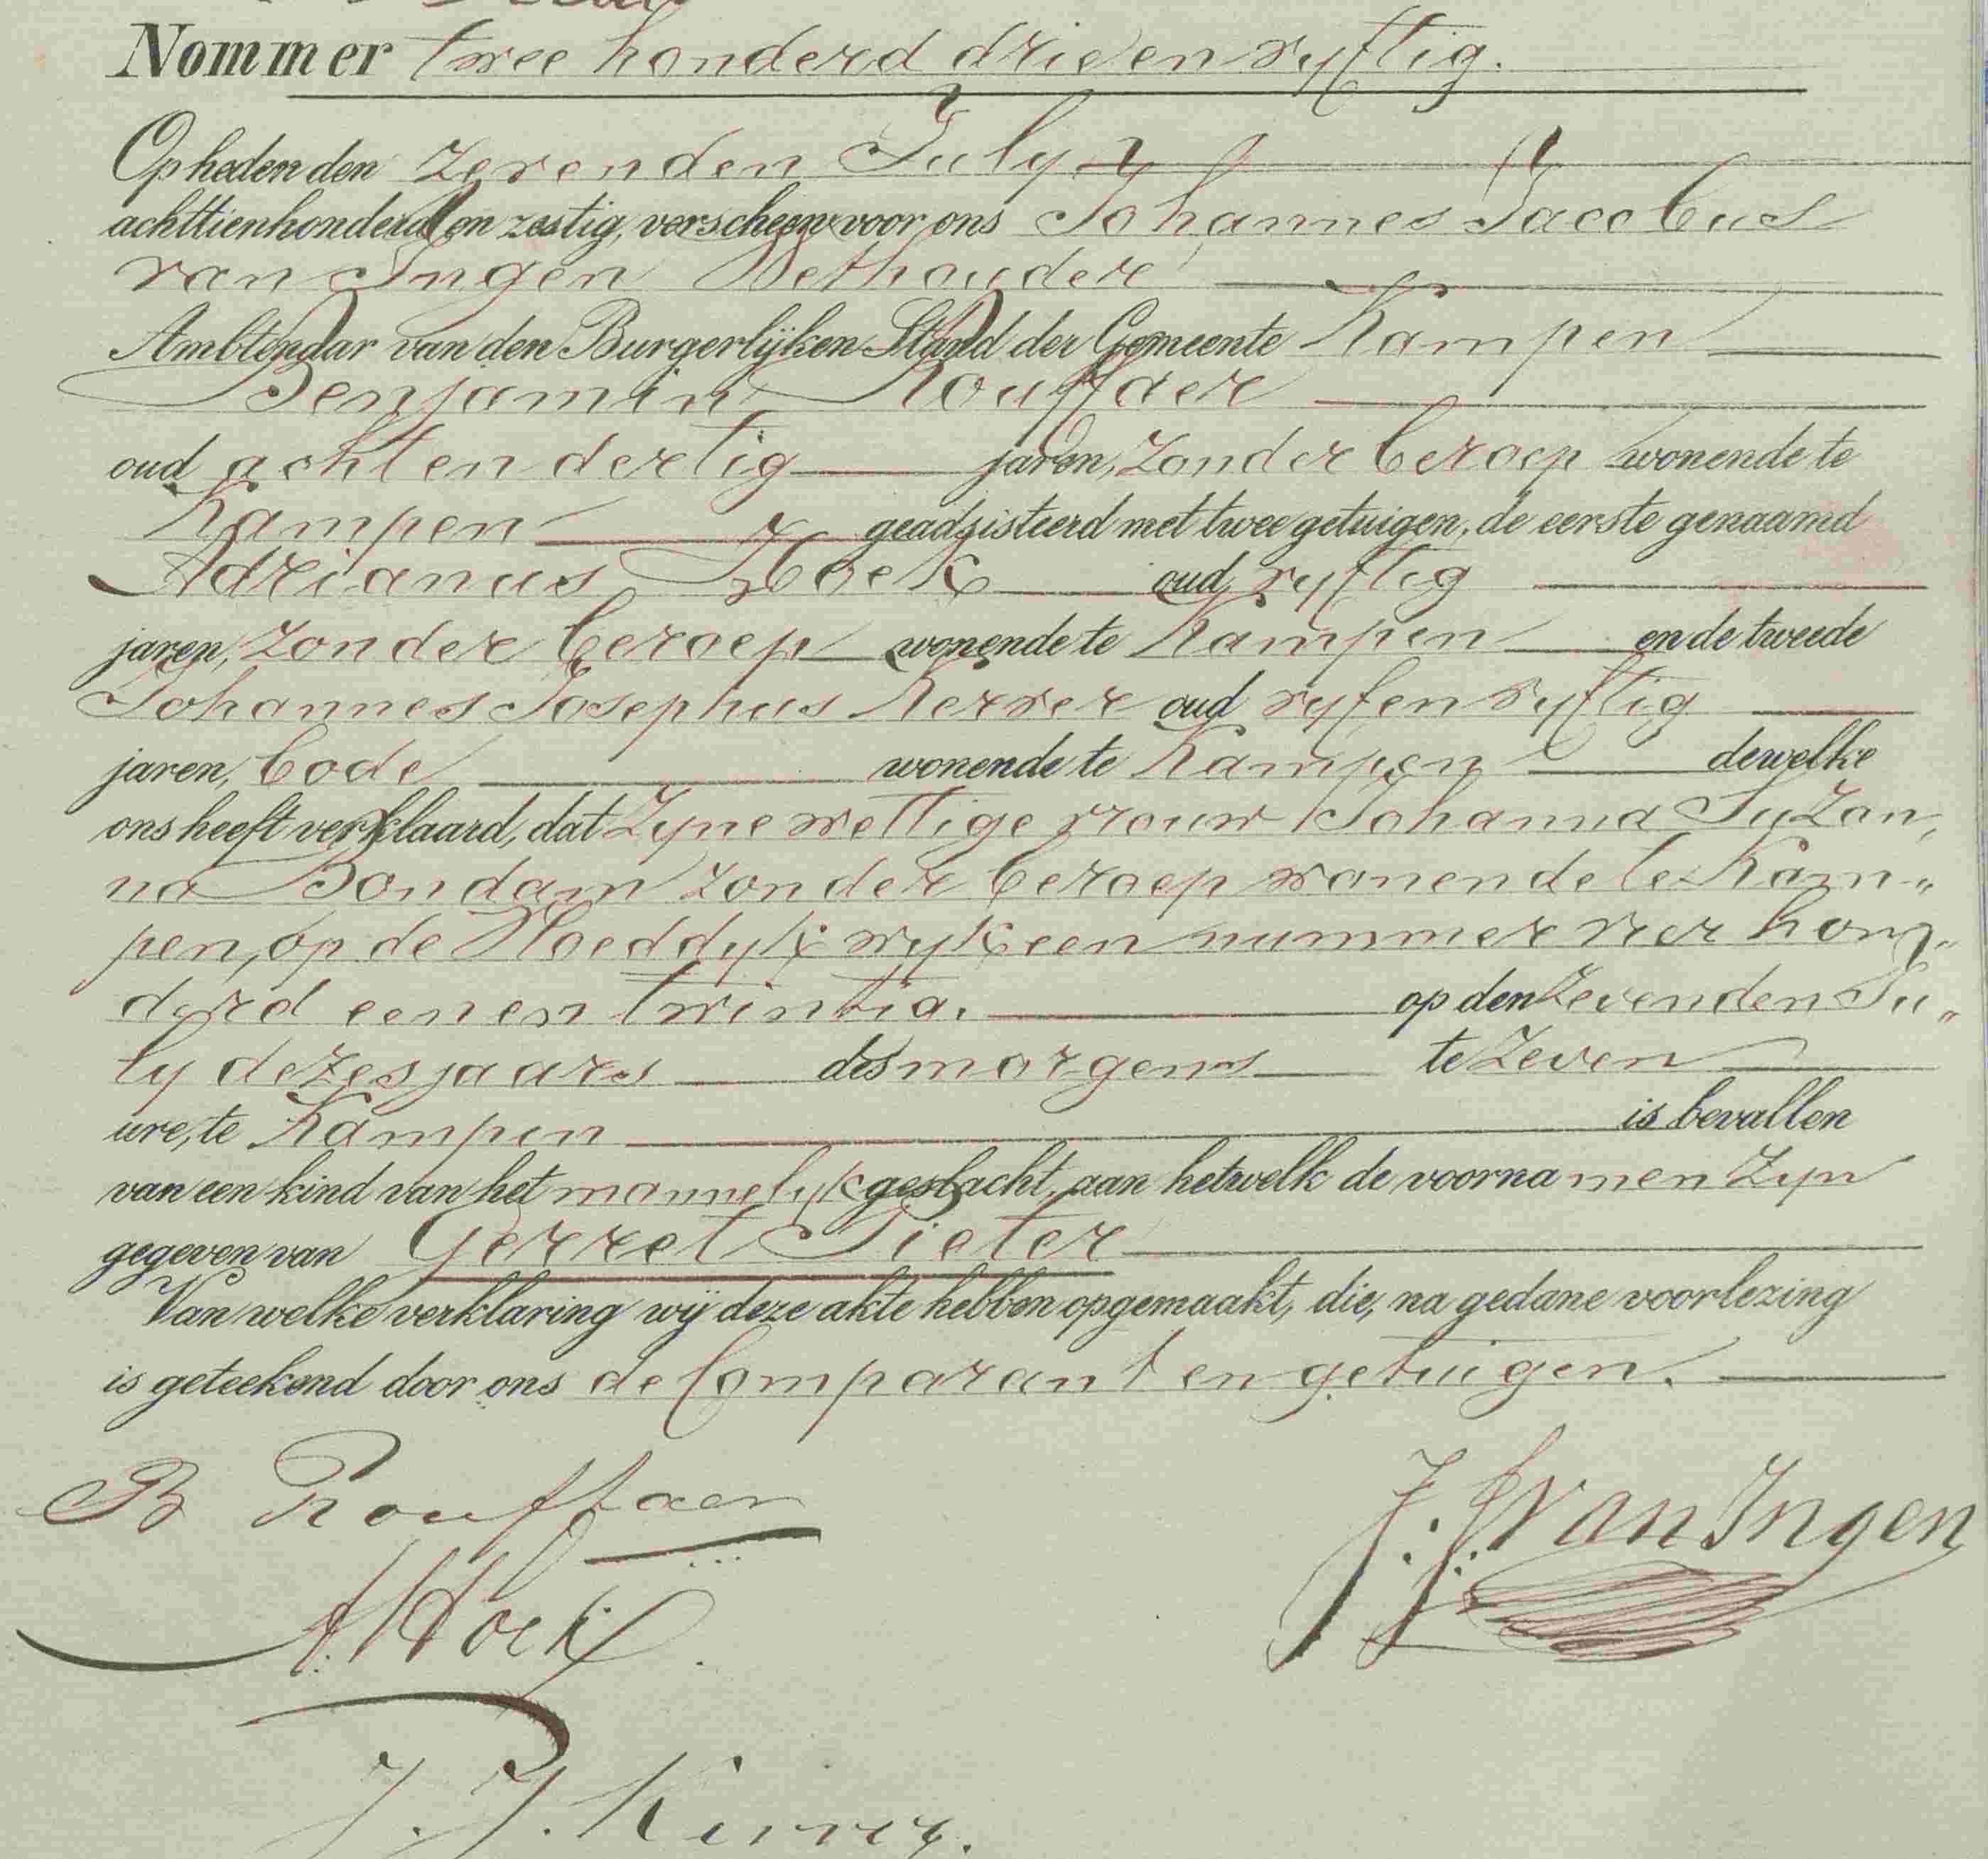 Nommer twee honderd drieenvyftig.
Op heden den zevenden July
achttienhonderd en zestig, verscheen voor ons Johannes Jacobus
van Ingen Wethouder
Ambtenaar van den Burgerlijken Stand der Gemeente Kampen
Benjamin Rouffaer
oud achtendertig jaren, Zonder beroep wonende te
Kampen geadsisteerd met twee getuigen, de eerste genaamd
Adrianus Hoek oud vyftig
jaren, Zonder beroep wonende te Kampen en de tweede
Johannes Josephus oud vyfenvyftig
jaren, bode wonende te Kampen dewelke
ons heeft verklaard, dat Zyne wettige vrouw Johanna Suzan,
na Bondam zonder beroep wonende te Kam„
pen, op de Vloeddyk wyk een nummer vier hon„
derd eenentwintig. op den Zevenden Ju„
ly dezes jaars des morgens te Zeven
ure, te Kampen is bevallen
van een kind van het mannelyk geslacht, aan hetwelk de voornamen zyn
gegeven van Gerret Pieter
Van welke verklaring wij deze akte hebben opgemaakt, die, na gedane voorlezing
is geteekend door ons de Comparant en getuigen.
B Rouffaer
J. J. Van Ingen
A. Hoek